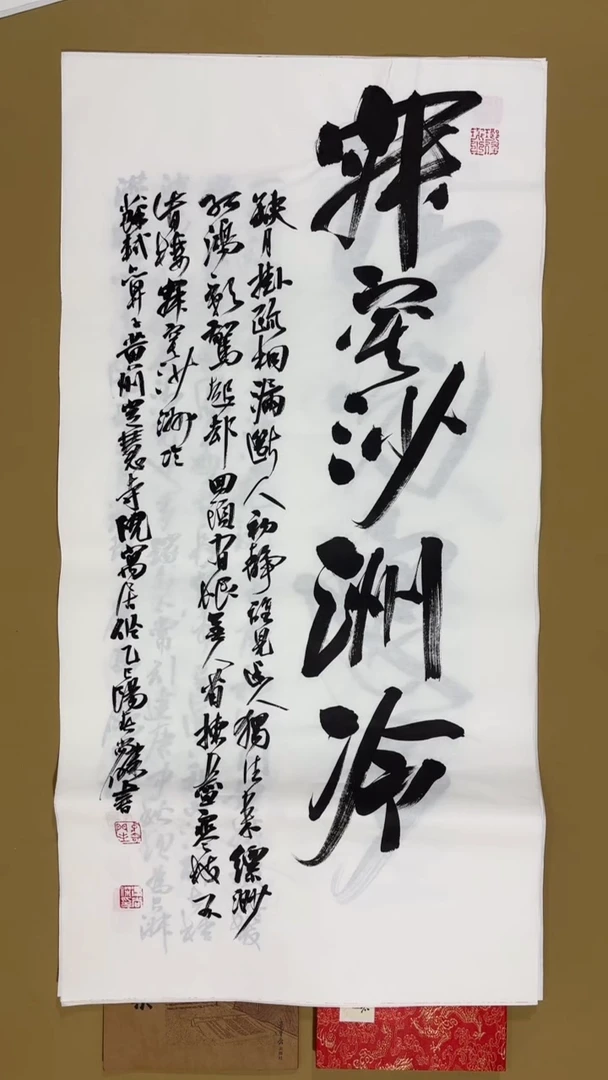 寂寞沙洲冷
缺月掛疏桐漏斷人初靜誰見幽人獨往來縹緲
孤鴻影驚起却回頭有恨無人省揀盡寒枝不
肯棲寂寞沙洲冷
蘇軾卜算子黃州定慧寺院寓居作乙巳陽春書